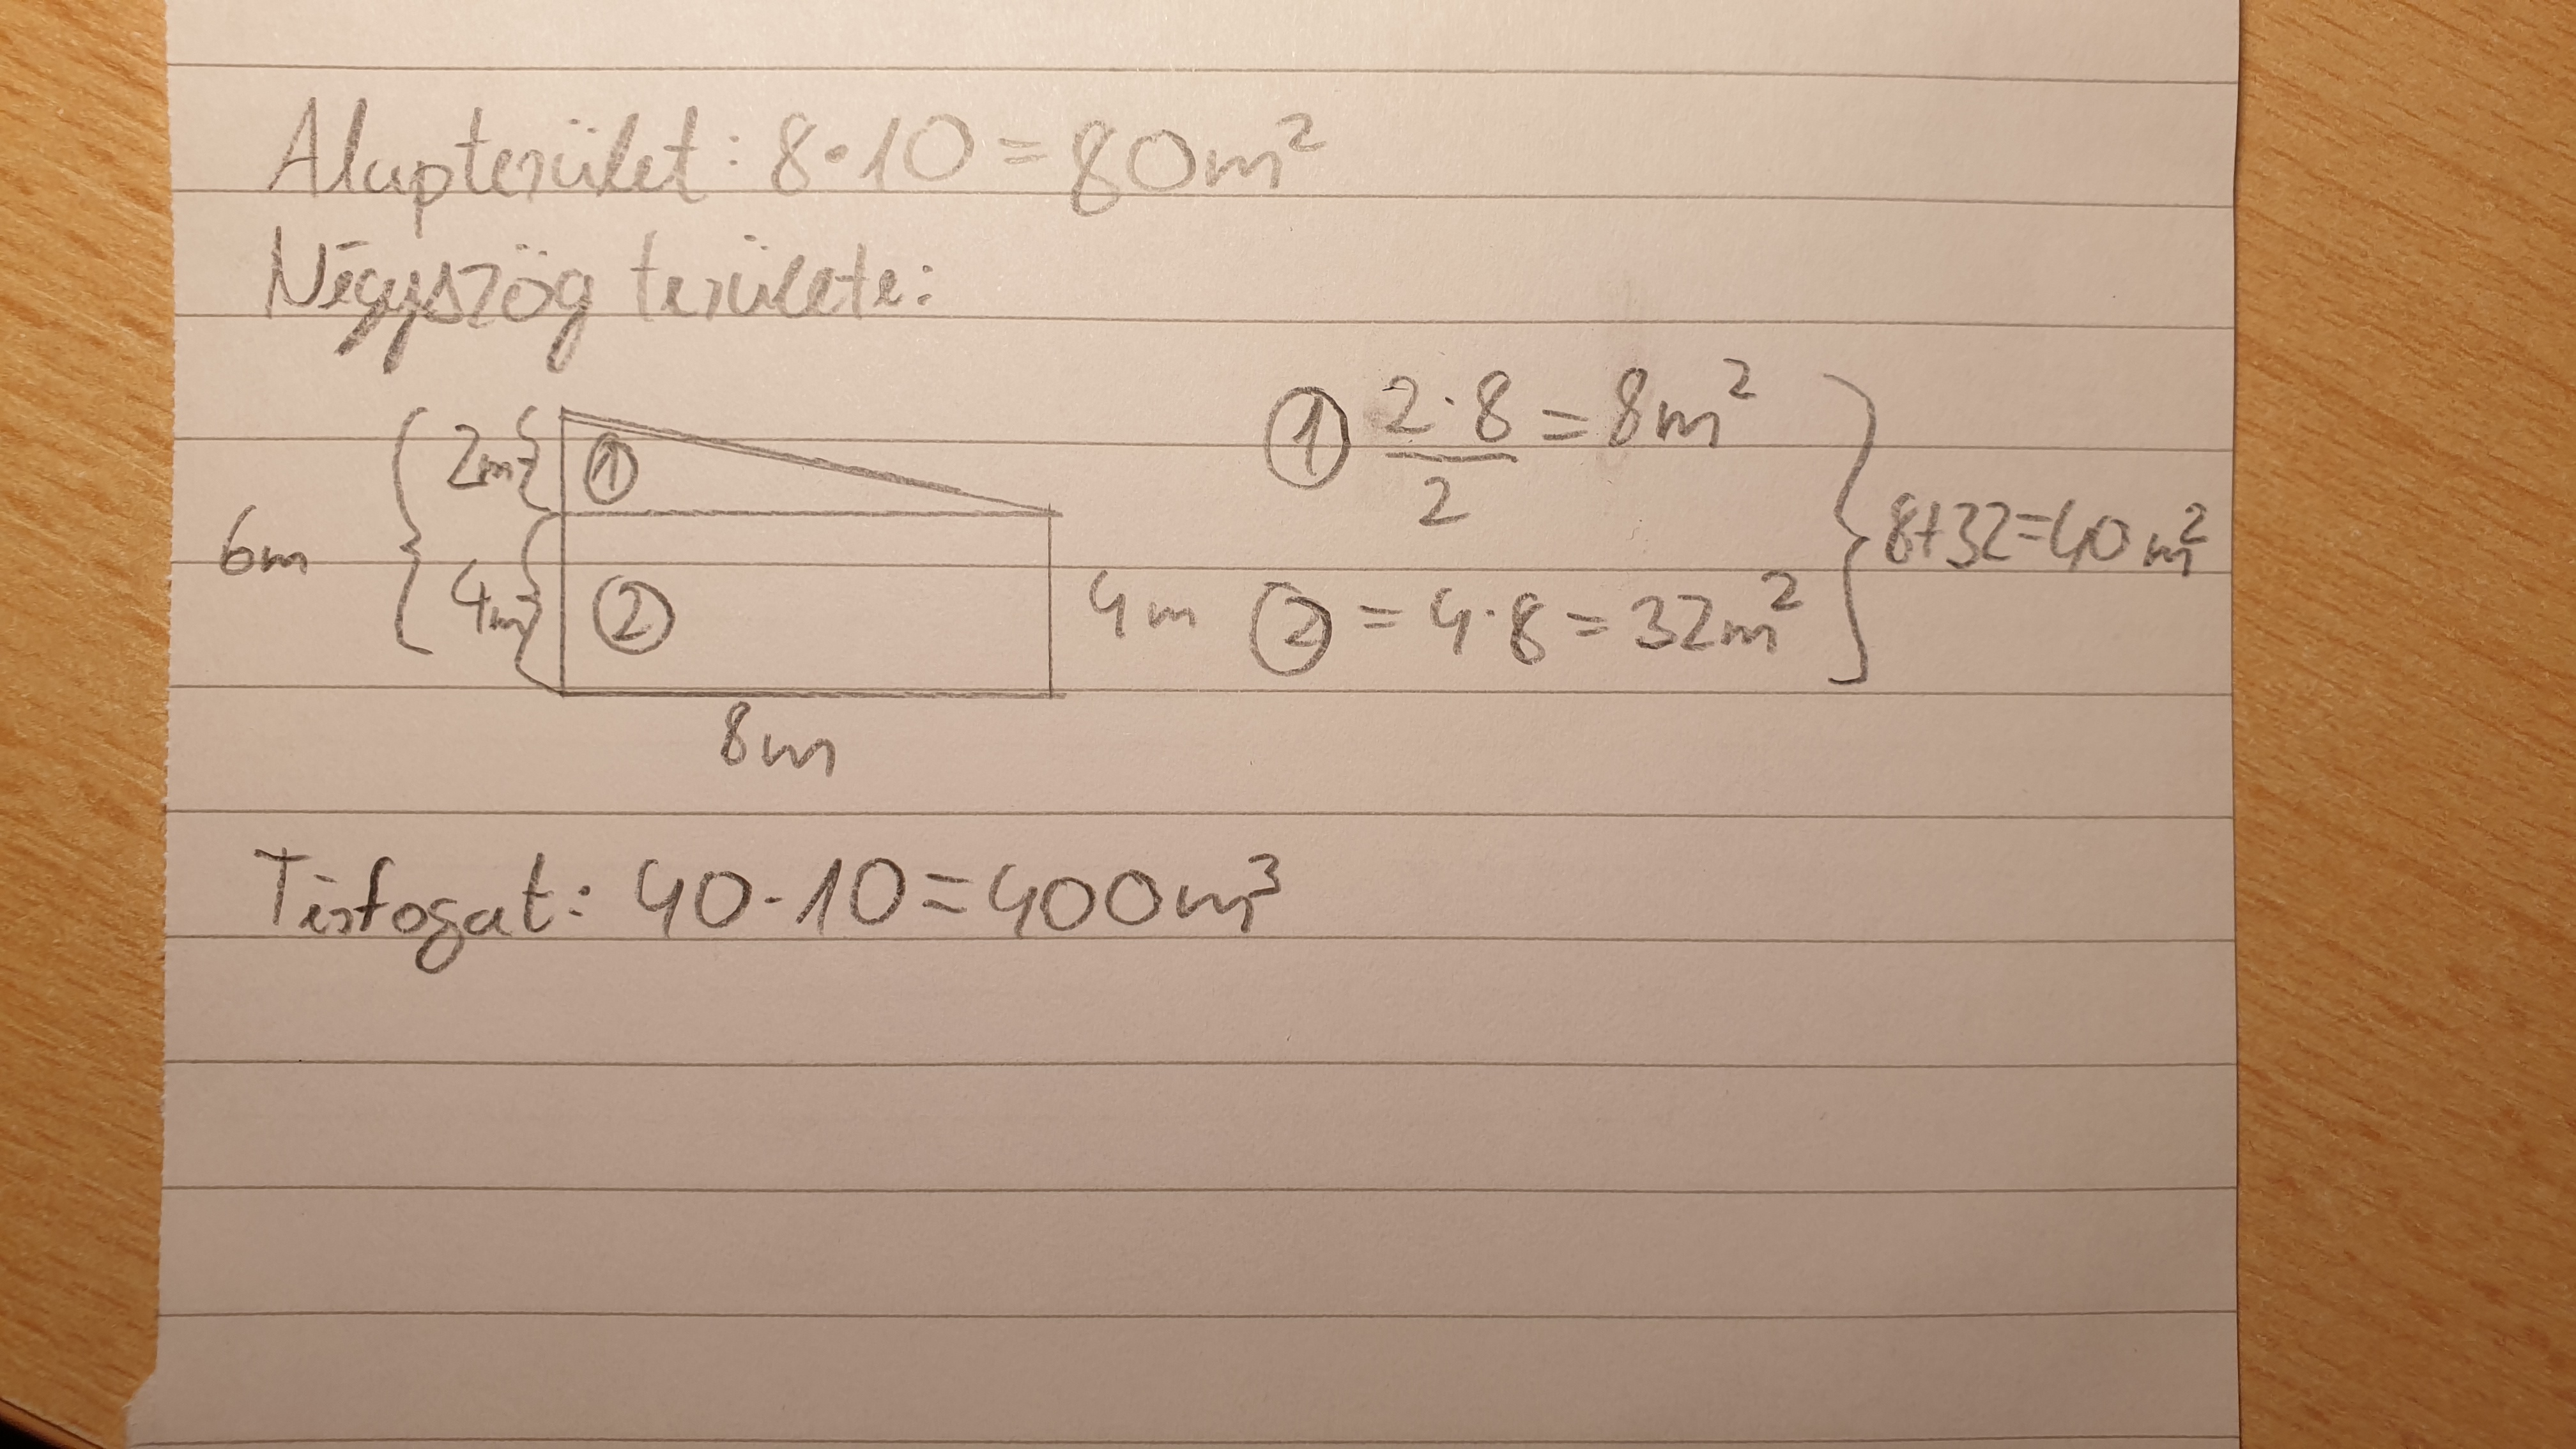 Alapterület: 8·10=80m²
Négyszög területe:
6m { 2m { ① ① 2·8/2 = 8m²
4m { ② 4m ② = 4·8 = 32m² } 8+32=40m²
8m
Térfogat: 40·10=400m³